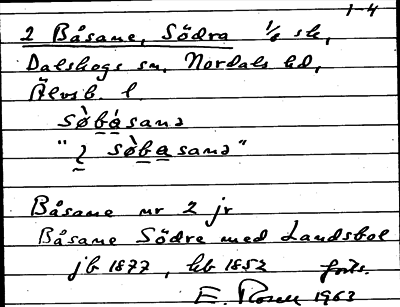 1-4
2 Båsane, Södra 1/6 sk,
Dalskogs sn, Nordals hd,
Älvsb. l.
sø̀båsanə
"2 sø̀basanə"
Båsane nr 2 jr
Båsane Södre med Landsbol
jb 1877, kb 1852 forts.
E. Rosell 1963